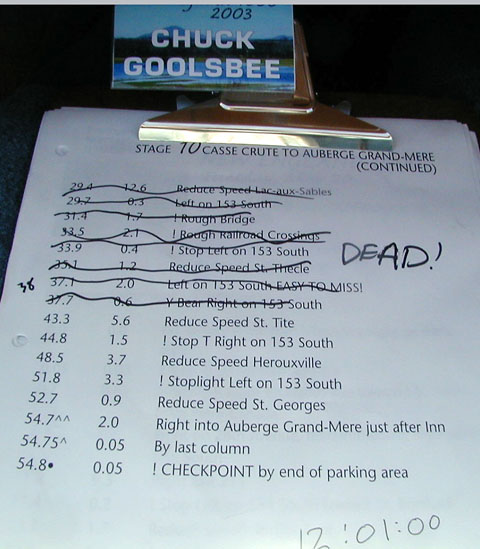 2003
CHUCK
GOOLSBEE
STAGE 10 CASSE CRUTE TO AUBERGE GRAND-MERE
(CONTINUED)
29.4 12.6 Reduce Speed Lac-aux-Sables
29.7 0.3 Left on 153 South
31.4 1.7 ! Rough Bridge
33.5 2.1 ! Rough Railroad Crossings
33.9 0.4 ! Stop Left on 153 South
DEAD!
35.1 1.2 Reduce Speed St. Thecle
38 37.1 2.0 Left on 153 South EASY TO MISS!
37.7 0.6 Y Bear Right on 153 South
43.3 5.6 Reduce Speed St. Tite
44.8 1.5 ! Stop T Right on 153 South
48.5 3.7 Reduce Speed Herouxville
51.8 3.3 ! Stoplight Left on 153 South
52.7 0.9 Reduce Speed St. Georges
54.7^^ 2.0 Right into Auberge Grand-Mere just after Inn
54.75^ 0.05 By last column
54.8• 0.05 ! CHECKPOINT by end of parking area
12:01:00